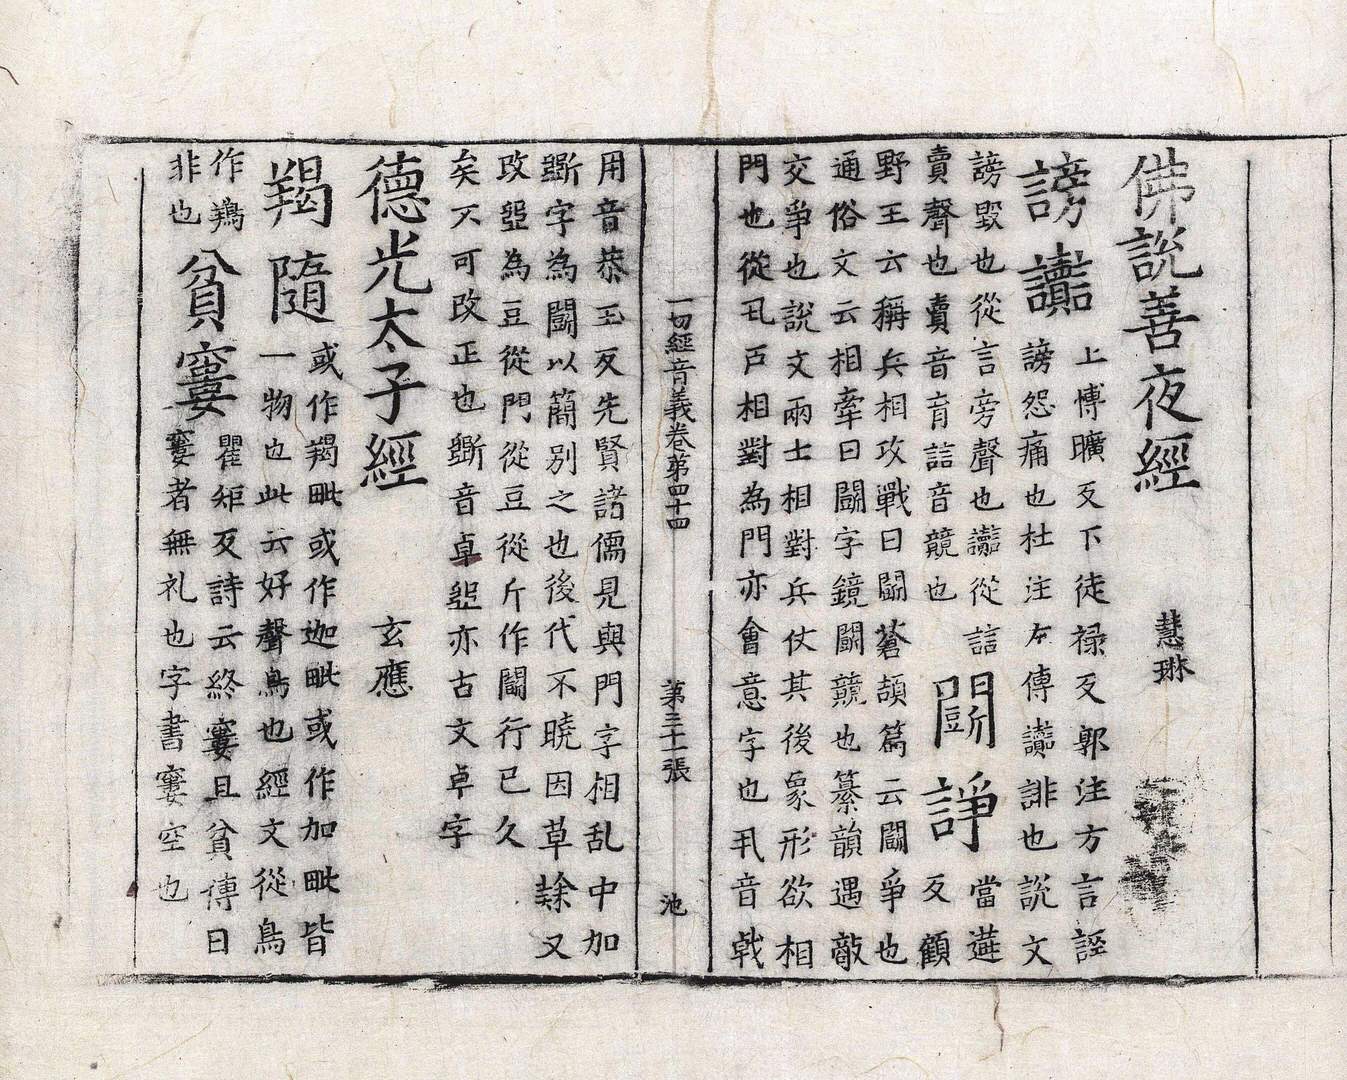 佛說善夜經　慧琳
謗讟　上愽曠反下徒禄反郭注方言誣
謗怨痛也杜注左傳讟誹也說文
謗毀也從言旁聲也讟從誩
賣聲也賣音育誩音競也
闘諍　當遘
反顧
野王云稱兵相攻戰曰鬪蒼頡篇云鬪爭也
通俗文云相牽曰鬪字鏡鬪競也纂韻遇敵
交爭也說文兩士相對兵仗其後象形欲相
門也從丮𠨭相對為門亦會意字也丮音戟
一切經音義卷第四十四　第三十一張　池
用音恭玉反先賢諸儒見與門字相乱中加
斲字為鬪以簡別之也後代不曉因草𨽻又
改𠁁為豆從門從豆從斤作闘行已久
矣不可改正也斲音卓𠁁亦古文卓字
德光太子經　玄應
羯隨　或作羯毗或作迦毗或作加毗皆
一物也此云好聲鳥也經文從鳥
作鶡
非也
貧窶　瞿矩反詩云終窶且貧傳曰
窶者無礼也字書窶空也